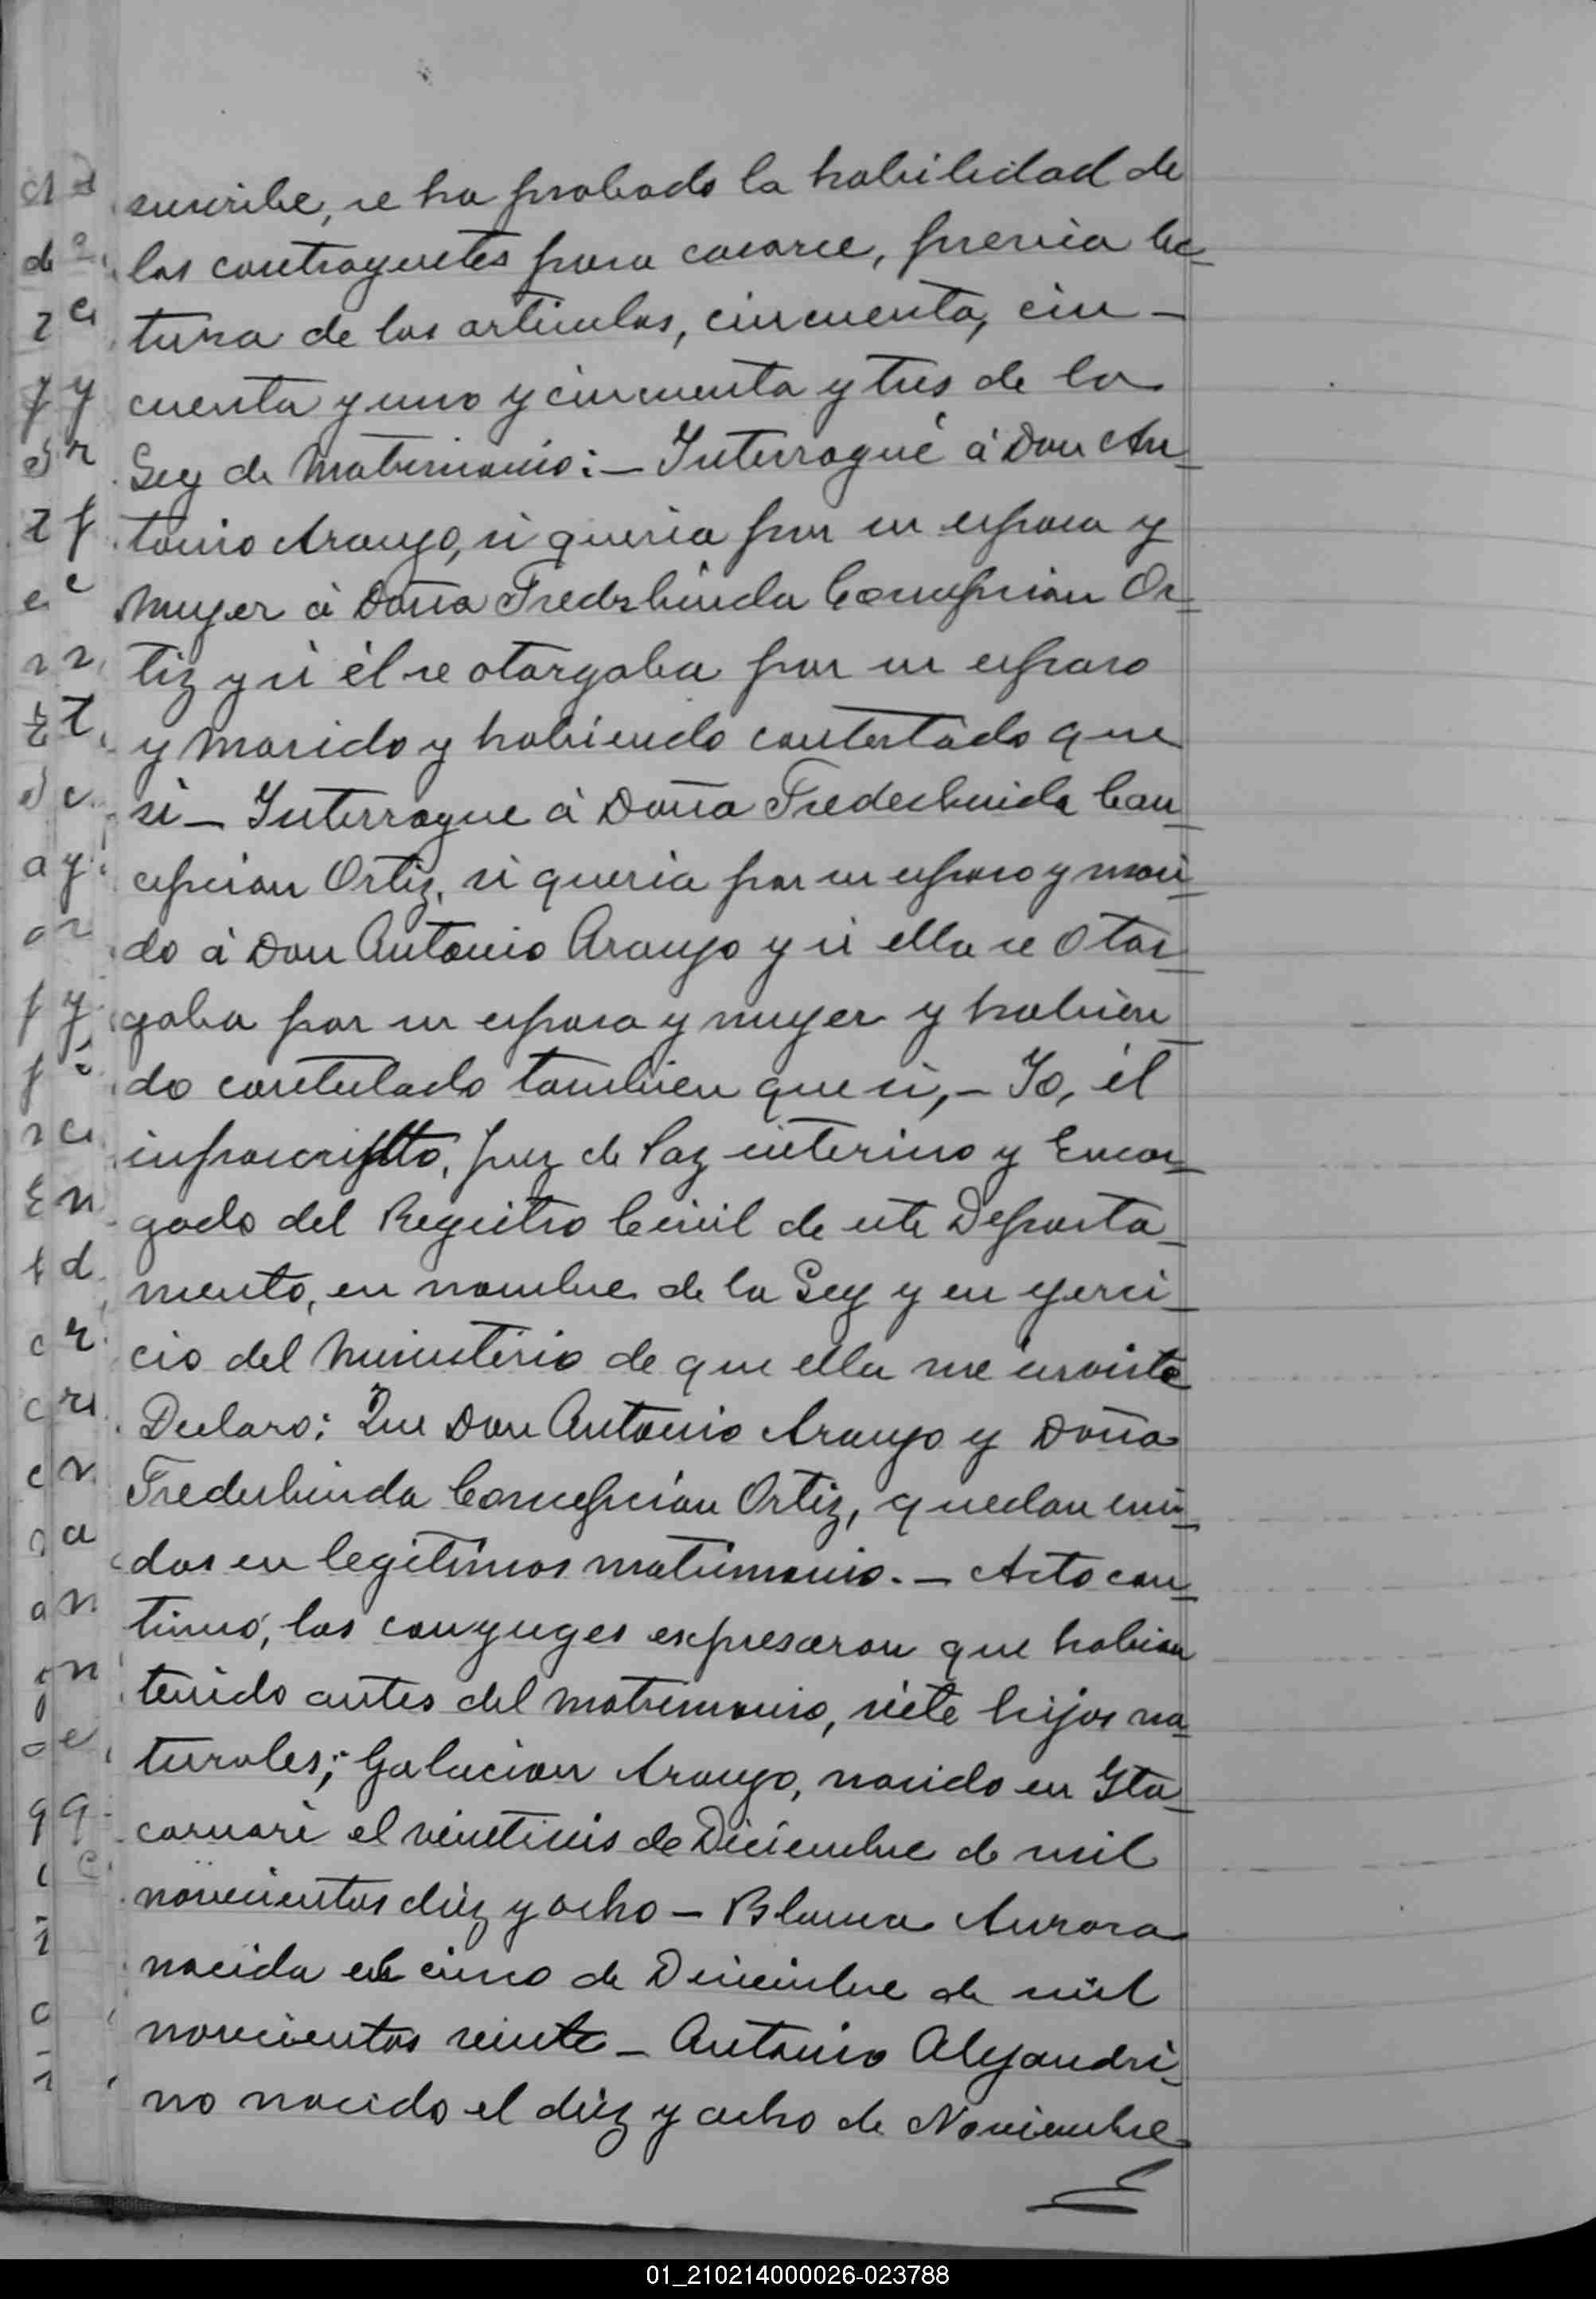 suscribe, se ha probado la habilidad de
los contrayentes para casarce, previa lec-
tura de los articulos, cincuenta, cin-
cuenta y uno y cincuenta y tres de la
Ley de Matrimonio:- Interrogué á Don An-
tonio Araujo, si queria por su esposa y
Mujer á Doña Fredesbinda Concepcion Or-
tiz y si él se otorgaba por su esposo
y Marido y habiendo contestado que
si - Interrogue á Doña Fredesbinda Con-
cepcion Ortiz, si queria por su esposo y mari-
do á Don Antonio Araujo y si ella se otor-
gaba por su esposa y mujer y habien-
do contestado tambien que si,- Yo, el
infrascripto, Juez de Paz interino y Encar-
gado del Registro Civil de este Departa-
mento, en nombre de la Ley y en ejerci-
cio del Ministerio de que ella me inviste
Declaro: Que Don Antonio Araujo y Doña
Fredesbinda Concepción Ortiz, quedan uni-
dos en legitimos matrimonio.- Acto con-
tinuo, los conyuges expresaron que habian
tenido antes del matrimonio, siete hijos na-
turales; Galacion Araujo, nacido en Yta-
coruaré el veintiseis de Diciembre de mil
novecientos diez y ocho - Blanca Aurora
nacida el cinco de Diciembre de mil
novecientos veinte - Antonio Alejandri-
no nacido el diez y ocho de Noviembre
01_210214000026-023788